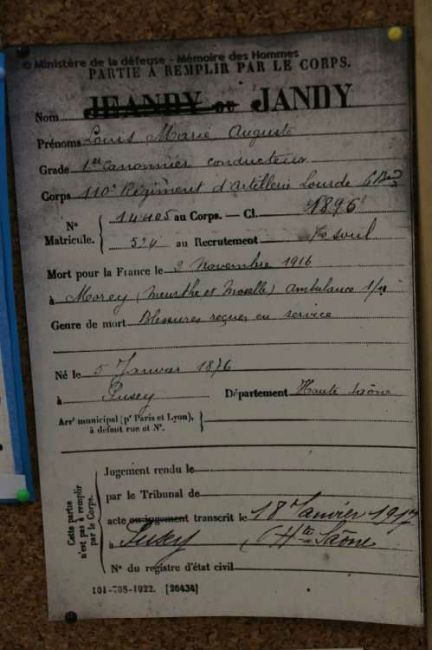 © Ministère de la défense - Mémoire des Hommes
PARTIE À REMPLIR PAR LE CORPS.
Nom JEANDY ou JANDY
Prénoms Louis Marie Auguste
Grade 1er Canonnier conducteur
Corps 110e Régiment d'Artillerie Lourde
N° Matricule. 14405 au Corps. — Cl. 1896
524 au Recrutement Vesoul
Mort pour la France le 2 Novembre 1916
à Morey (Meurthe et Moselle) Ambulance
Genre de mort Blessures reçues en service
Né le 5 Janvier 1876
à Pusey Département Haute Saône
Arrt municipal (pr Paris et Lyon), à défaut rue et N°.
Cette partie n'est pas à remplir par le Corps.
Jugement rendu le
par le Tribunal de
acte ou jugement transcrit le 18 Janvier 1917
à Pusey, Hte Saône
N° du registre d'état civil
101-708-1922. [26434]